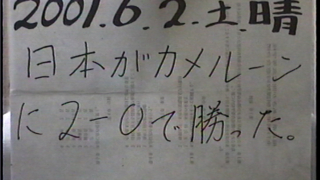 2001.6.2.土.晴
日本がカメルーン
に2-0で勝った。